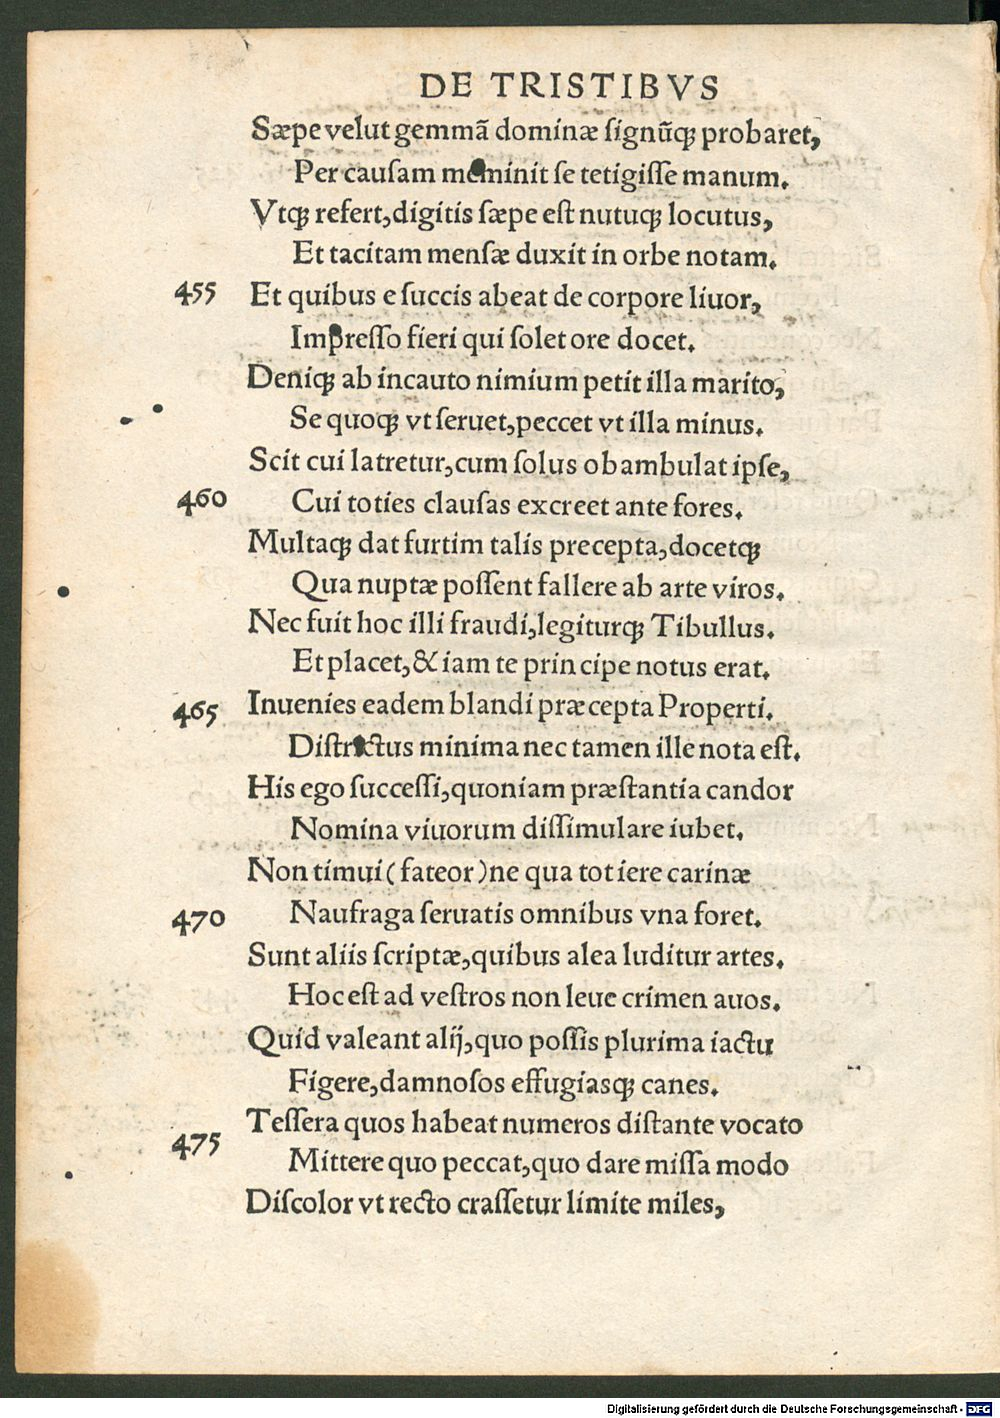 DE TRISTIBVS
Sæpe velut gemmã dominæ signũq; probaret,
Per causam meminit se tetigisse manum.
Vtq; refert, digitis sæpe est nutuq; locutus,
Et tacitam mensæ duxit in orbe notam.
455 Et quibus e succis abeat de corpore liuor,
Impresso fieri qui solet ore docet.
Deniq; ab incauto nimium petit illa marito,
Se quoq; vt seruet, peccet vt illa minus.
Scit cui latretur, cum solus obambulat ipse,
460 Cui toties clausas excreet ante fores.
Multaq; dat furtim talis precepta, docetq;
Qua nuptæ possent fallere ab arte viros.
Nec fuit hoc illi fraudi, legiturq; Tibullus.
Et placet, & iam te prin cipe notus erat.
465 Inuenies eadem blandi præcepta Properti.
Districtus minima nec tamen ille nota est.
His ego successi, quoniam præstantia candor
Nomina viuorum dissimulare iubet.
Non timui (fateor) ne qua tot iere carinæ
470 Naufraga seruatis omnibus vna foret.
Sunt aliis scriptæ, quibus alea luditur artes.
Hoc est ad vestros non leue crimen auos.
Quid valeant alij, quo possis plurima iactu
Figere, damnosos effugiasq; canes.
475 Tessera quos habeat numeros distante vocato
Mittere quo peccat, quo dare missa modo
Discolor vt recto crassetur limite miles,
Digitalisierung gefördert durch die Deutsche Forschungsgemeinschaft - DFG